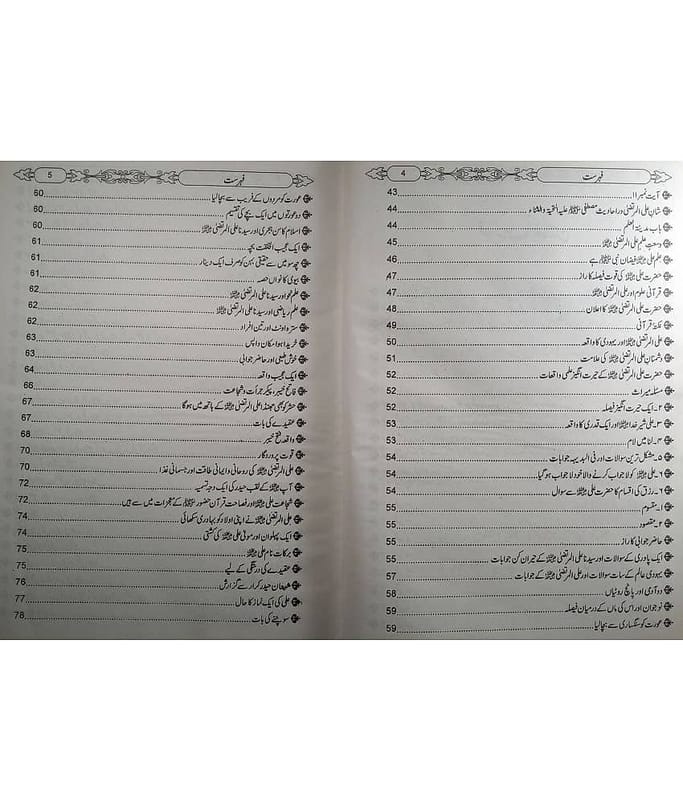 فہرست 4
آیت نمبر ۱۱ 43
شانِ علی المرتضیٰ در احادیث مصطفیٰ ﷺ علیہ التحیۃ والثناء 44
باب مدینۃ العلم 44
وسعتِ علمِ علی المرتضیٰ 45
علمِ علی فیضانِ نبی ہے 46
حضرت علی کی قوت فیصلہ کا راز 47
قرآنی علوم اور علی المرتضیٰ 47
حضرت علی المرتضیٰ کا اعلان 48
نکتۂ قرآنی 49
علی المرتضیٰ اور یہودی کا واقعہ 50
دشمنانِ علی المرتضیٰ کی علامت 51
حضرت علی المرتضیٰ کے حیرت انگیز علمی واقعات 52
مسئلہ میراث 52
۲۔ ایک حیرت انگیز فیصلہ 52
۳۔ علی شیر خدا اور ایک قدری کا واقعہ 53
۴۔ لنا میں لام 53
۵۔ مشکل ترین سوالات اور فی البدیہہ جوابات 54
۶۔ علی کو لاجواب کرنے والا خود لاجواب ہو گیا 54
۷۔ رزق کی اقسام کا حضرت علی سے سوال 54
۱۔ مقسوم 55
۲۔ مقصود 55
حاضر جوابی کا راز 55
ایک پادری کے سوالات اور سیدنا علی المرتضیٰ کے حیران کن جوابات 55
یہودی عالم کے سات سوالات اور علی المرتضیٰ کے جوابات 57
دو آدمی اور پانچ روٹیاں
نوجوان اور اس کی ماں کے درمیان فیصلہ 59
عورت کو سنگساری سے بچا لیا 59
فہرست 5
عورت کو مردوں کے فریب سے بچا لیا 60
دو عورتوں میں ایک بچے کی تقسیم 60
اسلام کا سن ہجری اور سیدنا علی المرتضیٰ 60
ایک عجیب الخلقت بچہ 61
چھ سو میں سے حقیقی بہن کو صرف ایک دینار 61
بیوی کا نواں حصہ 61
علم نحو اور سیدنا علی المرتضیٰ 62
علم ریاضی اور سیدنا علی المرتضیٰ 62
سترہ اونٹ اور تین افراد 62
خریدا ہوا مکان واپس 63
خوش طبعی اور حاضر جوابی 63
ایک عجیب واقعہ 64
فاتح خیبر، پیکر جرأت و شجاعت 66
حشر کو بھی جھنڈا علی المرتضیٰ کے ہاتھ میں ہوگا 67
عقیدے کی بات 67
واقعہ فتح خیبر 68
قوت پروردگار 70
علی المرتضیٰ کی روحانی و ایمانی طاقت اور جسمانی غذا 70
آپ کے لقب حیدر کی ایک وجہ تسمیہ 72
شجاعت علی اور فصاحت قرآن حضور ﷺ کے معجزات میں سے ہیں 72
علی المرتضیٰ نے اپنی اولاد کو بہادری سکھائی 74
ایک پہلوان اور مولیٰ علی کی کشتی 74
برکات نام علی 75
عقیدے کی درستگی کے لیے 75
شیعان حیدر کرار سے گزارش 76
علی کی ایک نماز کا حال 77
سوچنے کی بات 78